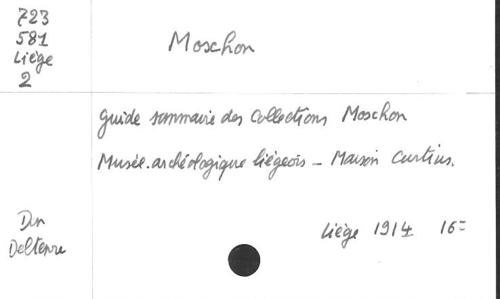 723
581
Liège
2
Moxhon
Guide sommaire des Collections Moxhon
Musée archéologique liégeois - Maison Curtius.
Liège 1914 16=
Don
Deltenre